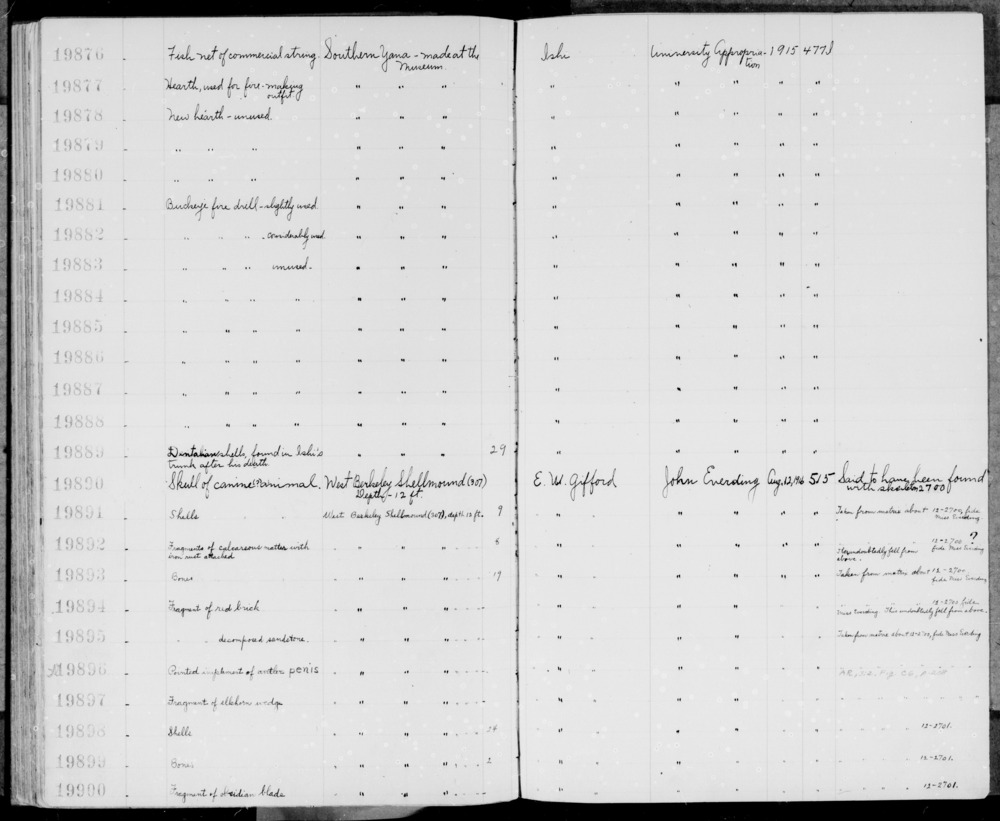 19876 Fish net of commercial string. Southern Yana - made at the Museum. Ishi University Appropriation 1915 477I
19877 Hearth, used for fire-making outfit " " " " " " " "
19878 New hearth - unused. " " " " " " " "
19879 " " " " " " " " " " "
19880 " " " " " " " " " " "
19881 Buckeye fire drill - slightly used " " " " " " " "
19882 " " " - considerably used " " " " " " " "
19883 " " " unused. " " " " " " " "
19884 " " " " " " " " " " " "
19885 " " " " " " " " " " " "
19886 " " " " " " " " " " " "
19887 " " " " " " " " " " " "
19888 " " " " " " " " " " " "
19889 shells, found in Ishi's trunk after his death " " " 29 " " " " "
19890 Skull of canine? animal. West Berkeley Shellmound (307) Depth - 12 ft. E. W. Gifford John Everding Aug. 515 Said to have been found with skeleton 2700
19891 Shells West Berkeley Shellmound (307), depth 12 ft. 9 " " " " " " Taken from matrix about 12-2700, fide Miss Everding
19892 Fragments of calcareous matter with iron rust attached " " " 8 " " " " 12-2700 ? fide Miss Everding undoubtedly fell from above.
19893 Bones " " " 19 " " " " " " Taken from matrix about 12-2700, fide Miss Everding
19894 Fragment of red brick " " " " " " " 12-2700 fide Miss Everding. This undoubtedly fell from above.
19895 " " decomposed sandstone. " " " " " " " Taken from matrix about 12-2700, fide Miss Everding
19896 Pointed implement of antler penis " " " " "
19897 Fragment of elkhorn wedge " " " " "
19898 Shells " " " 24 " " 12-2701.
19899 Bones " " " 2 " " 12-2701.
19900 Fragment of obsidian blade " " " " " 12-2701.